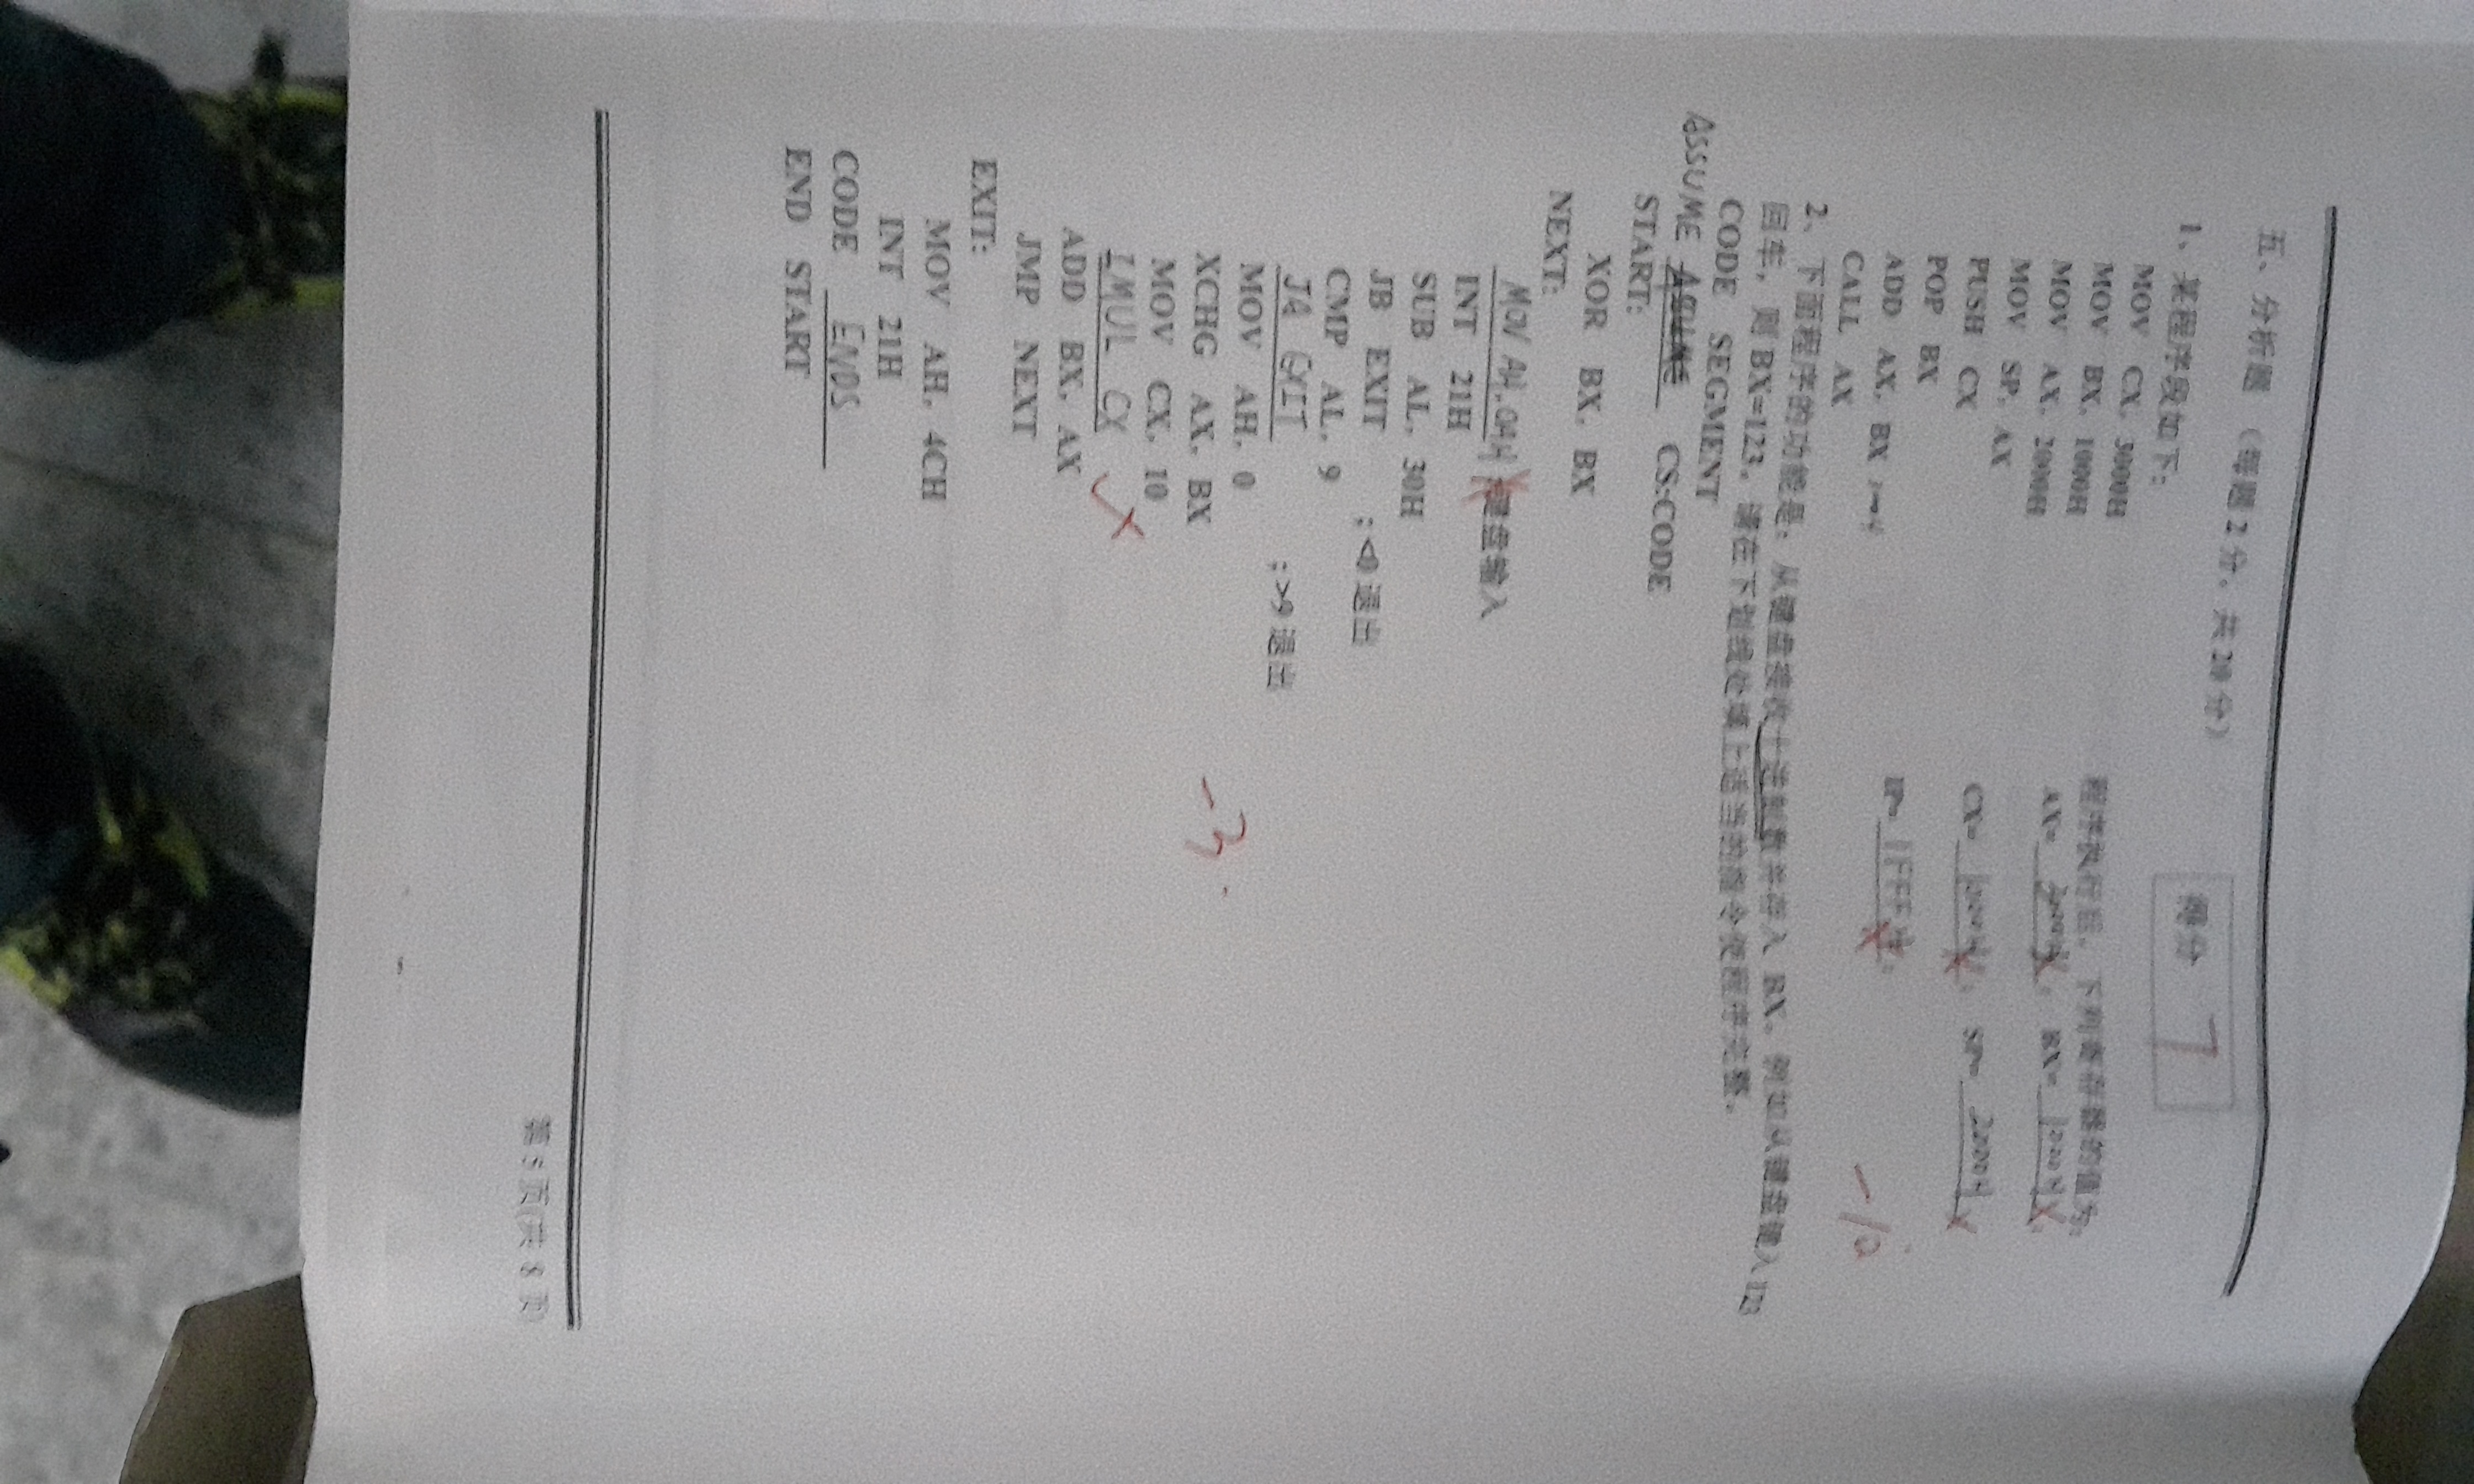 五、分析题 （每题2分，共20分）
得分 7
1、某程序段如下：
MOV CX，3000H
MOV BX，1000H
MOV AX，2000H
MOV SP，AX
PUSH CX
POP BX
ADD AX，BX
CALL AX
程序执行后，下列寄存器的值为：
AX= 3000H ； BX= 1000H ；
CX= 1000H ； SP= 2000H
IP= 1FFFH 。
-10
2、下面程序的功能是：从键盘接收十进制数并存入 BX。例如从键盘键入 123
回车，则 BX=123。请在下划线处填上适当的指令使程序完整。
CODE SEGMENT
ASSUME CS:CODE
START:
XOR BX，BX
NEXT:
MOV AH,0AH ;键盘输入
INT 21H
SUB AL，30H
JB EXIT ；<0 退出
CMP AL，9
JA EXIT ；>9 退出
MOV AH，0
XCHG AX，BX
MOV CX，10
-3
IMUL CX
ADD BX，AX
JMP NEXT
EXIT:
MOV AH，4CH
INT 21H
CODE ENDS
END START
第 5 页(共 8 页)